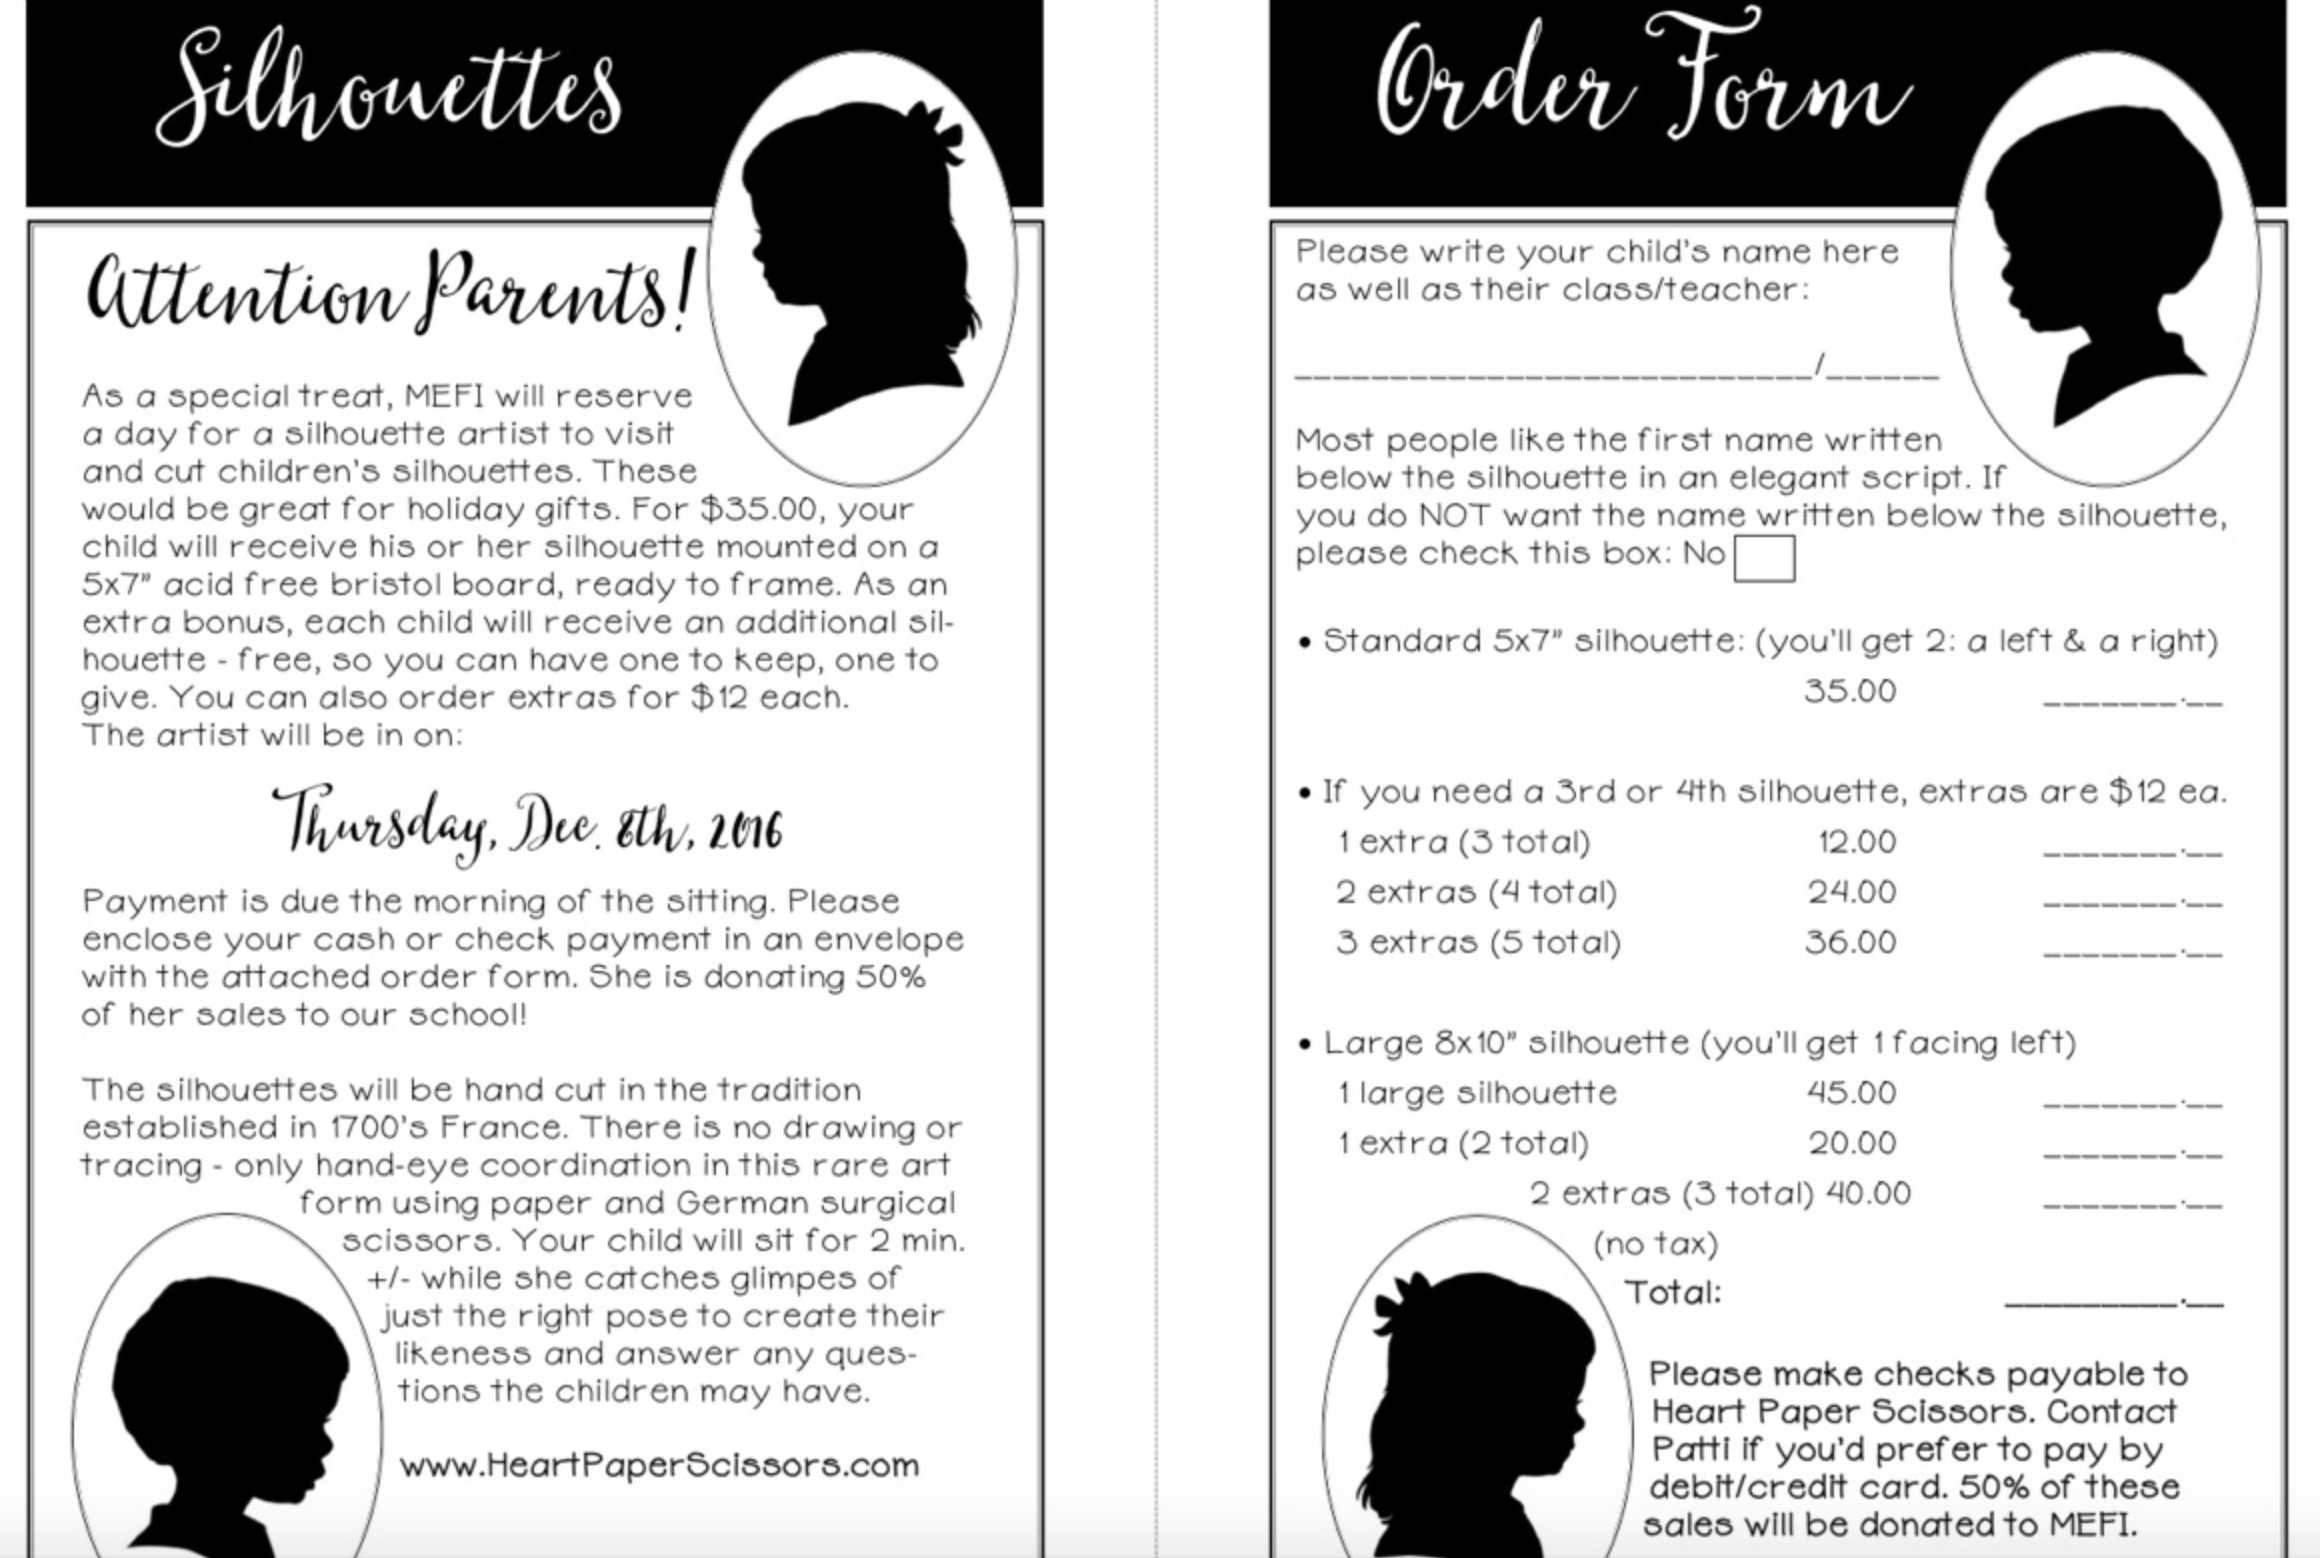 Silhouettes
Attention Parents!
As a special treat, MEFI will reserve
a day for a silhouette artist to visit
and cut children's silhouettes. These
would be great for holiday gifts. For $35.00, your
child will receive his or her silhouette mounted on a
5x7" acid free bristol board, ready to frame. As an
extra bonus, each child will receive an additional sil-
houette - free, so you can have one to keep, one to
give. You can also order extras for $12 each.
The artist will be in on:
Thursday, Dec. 8th, 2016
Payment is due the morning of the sitting. Please
enclose your cash or check payment in an envelope
with the attached order form. She is donating 50%
of her sales to our school!
The silhouettes will be hand cut in the tradition
established in 1700's France. There is no drawing or
tracing - only hand-eye coordination in this rare art
form using paper and German surgical
scissors. Your child will sit for 2 min.
+/- while she catches glimpes of
just the right pose to create their
likeness and answer any ques-
tions the children may have.
www.HeartPaperScissors.com
Order Form
Please write your child's name here
as well as their class/teacher:
___________________________/______
Most people like the first name written
below the silhouette in an elegant script. If
you do NOT want the name written below the silhouette,
please check this box: No
• Standard 5x7" silhouette: (you'll get 2: a left & a right)
35.00 _______.__
• If you need a 3rd or 4th silhouette, extras are $12 ea.
1 extra (3 total) 12.00 _______.__
2 extras (4 total) 24.00 _______.__
3 extras (5 total) 36.00 _______.__
• Large 8x10" silhouette (you'll get 1 facing left)
1 large silhouette 45.00 _______.__
1 extra (2 total) 20.00 _______.__
2 extras (3 total) 40.00 _______.__
(no tax)
Total: _________.__
Please make checks payable to
Heart Paper Scissors. Contact
Patti if you'd prefer to pay by
debit/credit card. 50% of these
sales will be donated to MEFI.